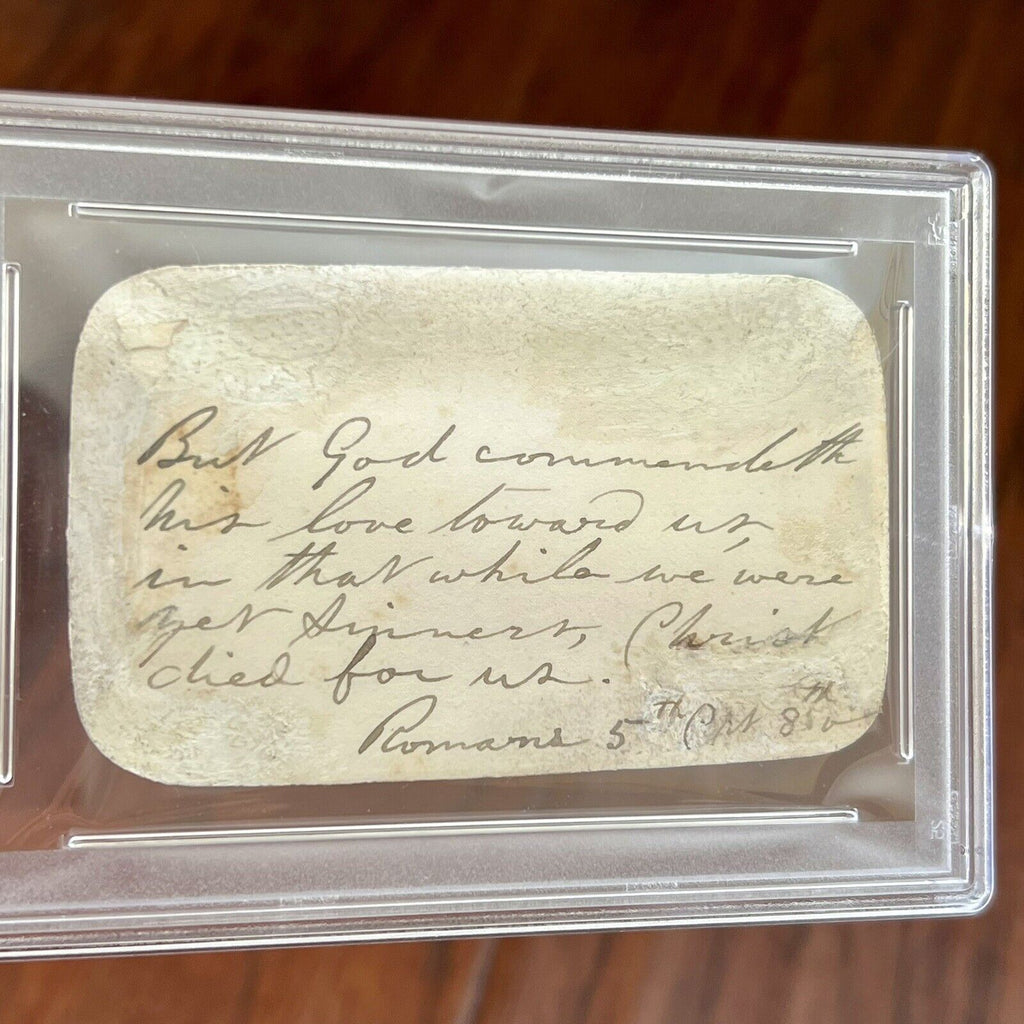 But God commendeth
his love toward us,
in that while we were
yet sinners, Christ
died for us.
Romans 5th Cpt 8th v